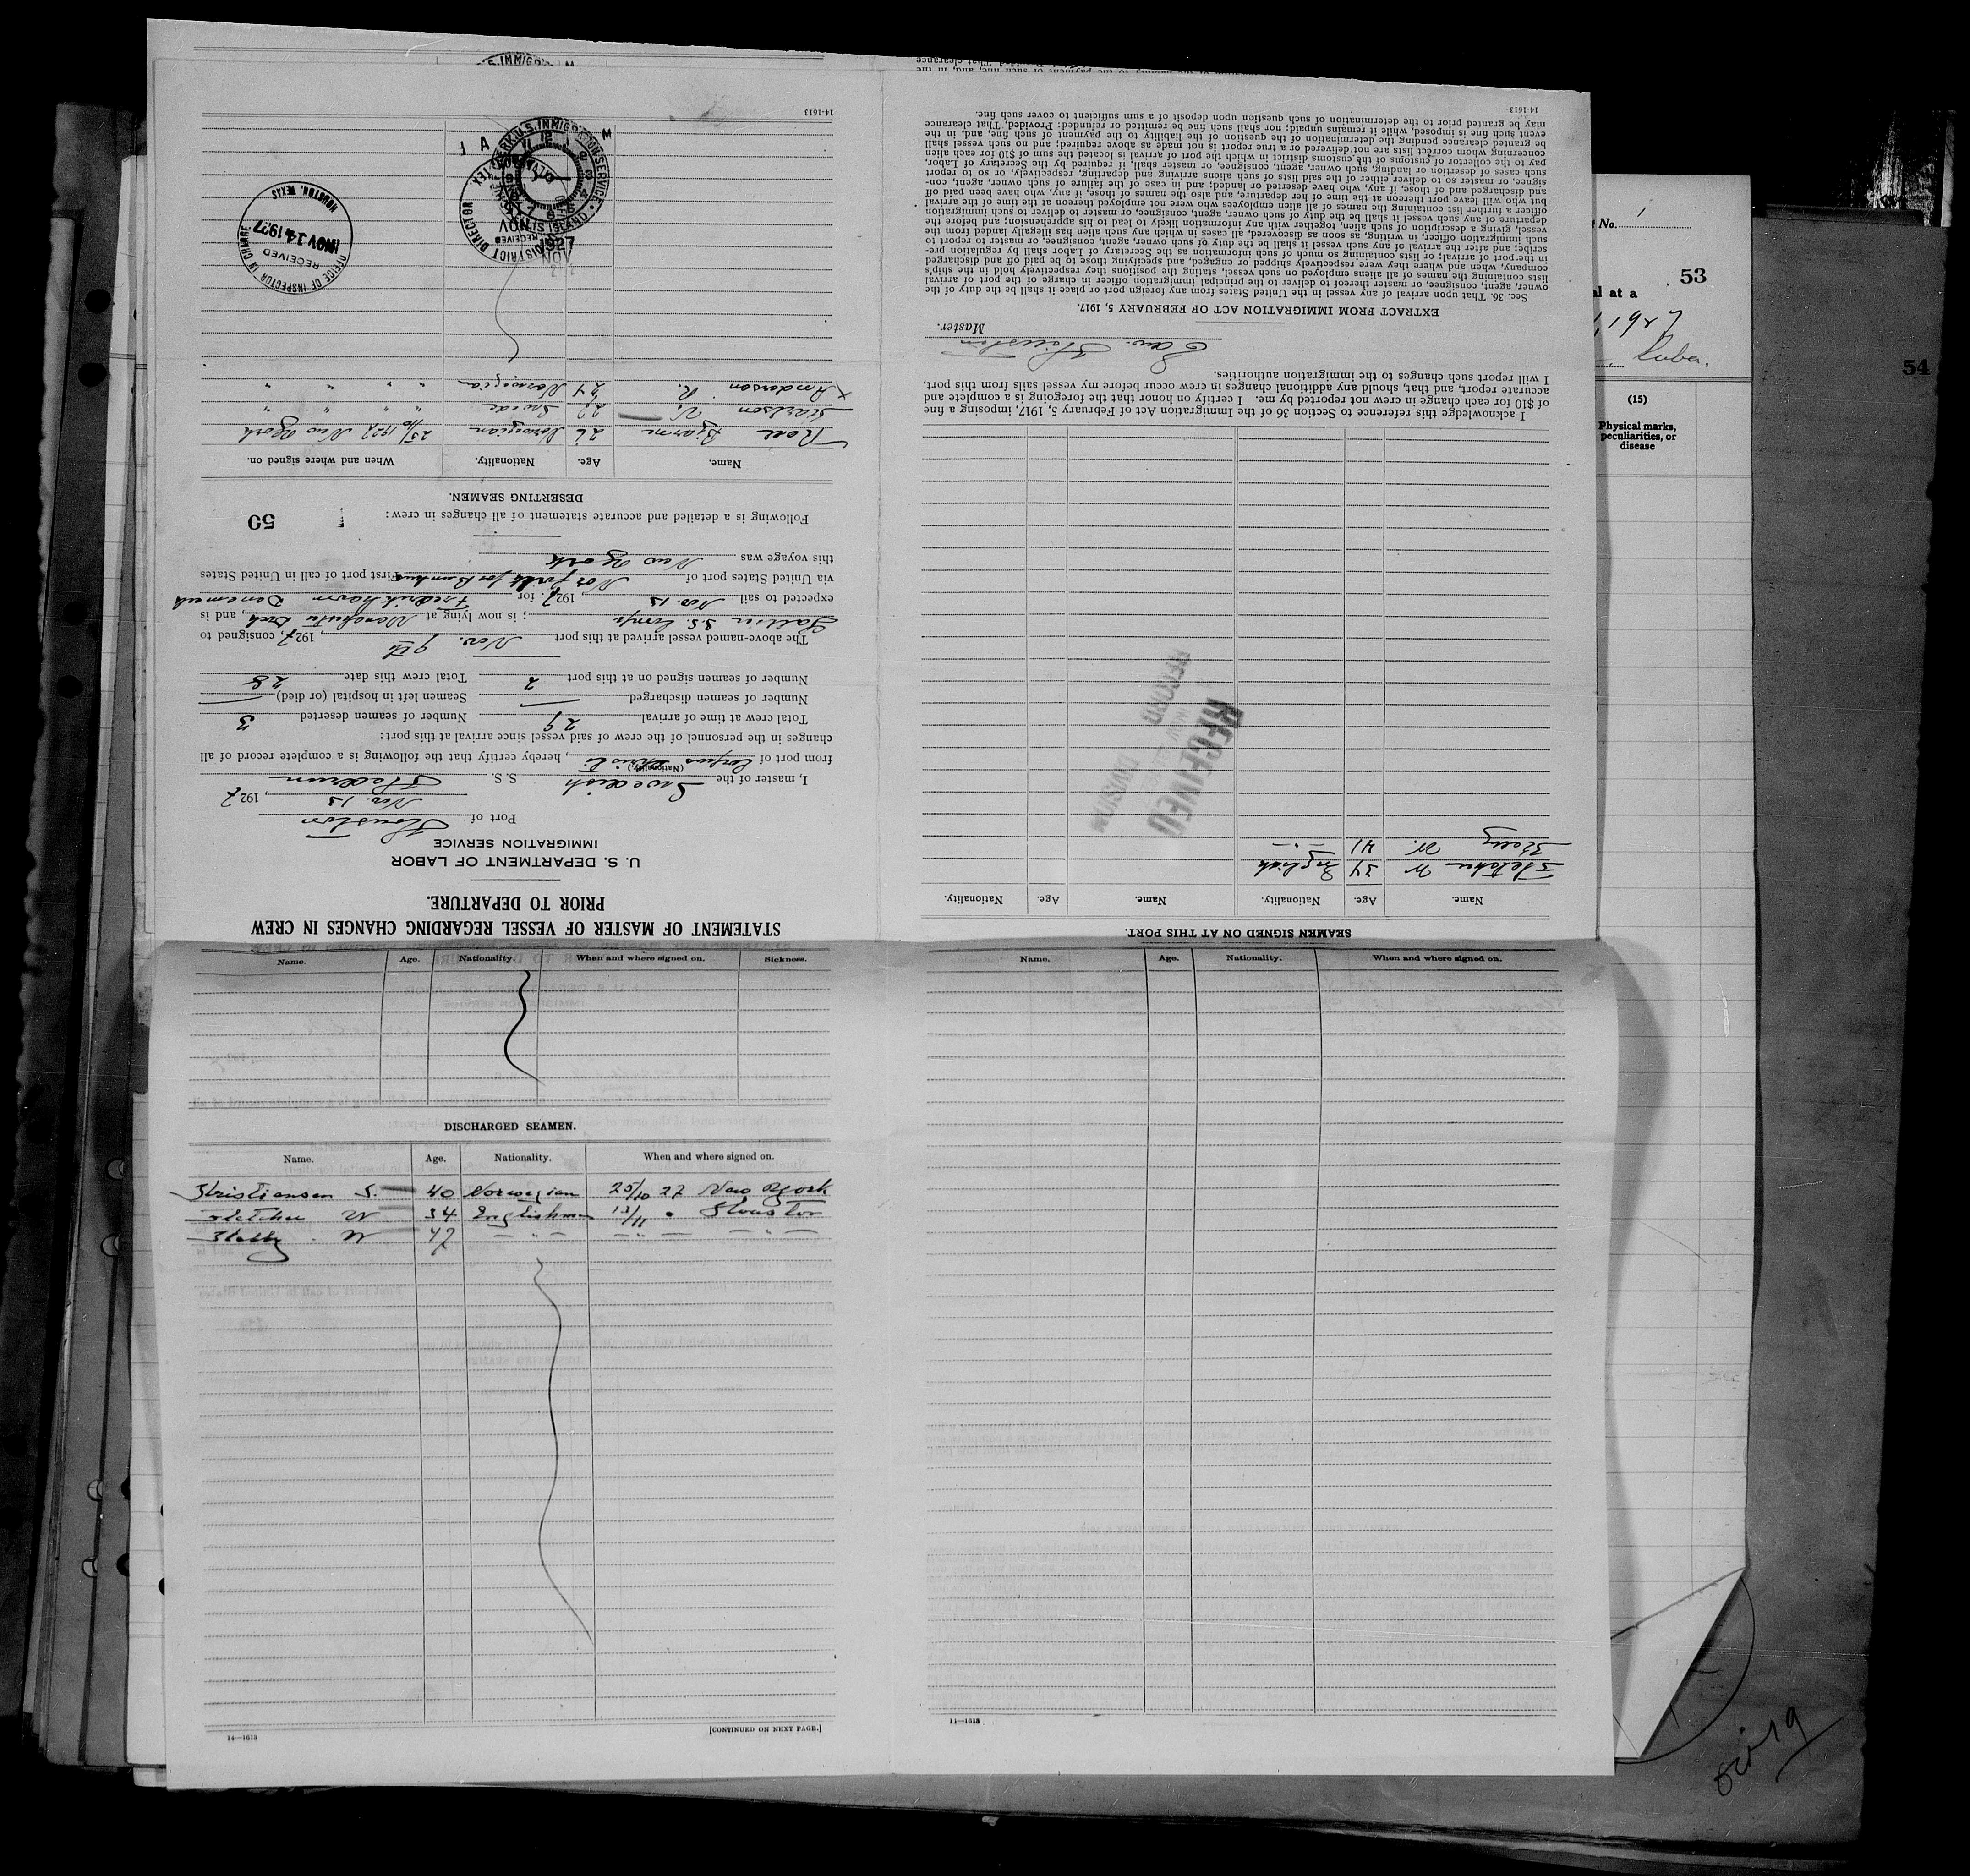 STATEMENT OF MASTER OF VESSEL REGARDING CHANGES IN CREW
PRIOR TO DEPARTURE.
U. S. DEPARTMENT OF LABOR
IMMIGRATION SERVICE
Port of Houston
Nov. 13, 1927
I, master of the Swedish S. S.
(Nationality)
from port of Corpus Christi, hereby certify that the following is a complete record of all
changes in the personnel of the crew of said vessel since arrival at this port:
Total crew at time of arrival 29 Number of seamen deserted 3
Number of seamen discharged Seamen left in hospital (or died)
Number of seamen signed on at this port 2 Total crew this date 28
The above-named vessel arrived at this port Nov. 9th, 1927, consigned to
S.S. ; is now lying at Dock, and is
expected to sail Nov. 13, 1927, for Denemark
via United States port of Norfolk for Bunkers First port of call in United States
this voyage was New York
Following is a detailed and accurate statement of all changes in crew:
50
DESERTING SEAMEN.
Name. Age. Nationality. When and where signed on.
Bjarne 26 Norwegian 25/10 1927 New York
V. 22 Swede " " "
x Anderson R. 24 Norwegian " " "
U.S. IMMIGRATION SERVICE
ELLIS ISLAND
RECEIVED
NOV
1927
DISTRICT DIRECTOR
OFFICE OF INSPECTOR IN CHARGE
RECEIVED
NOV 14 1927
HOUSTON, TEXAS
14-1613
SEAMEN SIGNED ON AT THIS PORT.
Name. Age. Nationality. Name. Age. Nationality.
Fletcher W 34 English
W. 41 - " -
RECEIVED
RECORD DIVISION
I acknowledge this reference to Section 36 of the Immigration Act of February 5, 1917, imposing a fine
of $10 for each change in crew not reported by me. I certify on honor that the foregoing is a complete and
accurate report, and that, should any additional changes in crew occur before my vessel sails from this port,
I will report such changes to the immigration authorities.
Master.
EXTRACT FROM IMMIGRATION ACT OF FEBRUARY 5, 1917.
Sec. 36. That upon arrival of any vessel in the United States from any foreign port or place it shall be the duty of the
owner, agent, consignee, or master thereof to deliver to the principal immigration officer in charge of the port of arrival
lists containing the names of all aliens employed on such vessel, stating the positions they respectively hold in the ship's
company, when and where they were respectively shipped or engaged, and specifying those to be paid off and discharged
in the port of arrival; or lists containing so much of such information as the Secretary of Labor shall by regulation pre-
scribe; and after the arrival of any such vessel it shall be the duty of such owner, agent, consignee, or master to report to
such immigration officer, in writing, as soon as discovered, all cases in which any such alien has illegally landed from the
vessel, giving a description of such alien, together with any information likely to lead to his apprehension; and before the
departure of any such vessel it shall be the duty of such owner, agent, consignee, or master to deliver to such immigration
officer a further list containing the names of all alien employees who were not employed thereon at the time of the arrival
but who will leave port thereon at the time of her departure, and also the names of those, if any, who have been paid off
and discharged, and of those, if any, who have deserted or landed; and in case of the failure of such owner, agent, con-
signee, or master so to deliver either of the said lists of such aliens arriving and departing, respectively, or so to report
such cases of desertion or landing, such owner, agent, consignee, or master shall, if required by the Secretary of Labor,
pay to the collector of customs of the customs district in which the port of arrival is located the sum of $10 for each alien
concerning whom correct lists are not delivered or a true report is not made as above required; and no such vessel shall
be granted clearance pending the determination of the question of the liability to the payment of such fine, and, in the
event such fine is imposed, while it remains unpaid; nor shall such fine be remitted or refunded: Provided, That clearance
may be granted prior to the determination of such question upon deposit of a sum sufficient to cover such fine.
14-1613
Name. Age. Nationality. When and where signed on. Sickness.
DISCHARGED SEAMEN.
Name. Age. Nationality. When and where signed on.
Kristiansen S. 40 Norwegian 25/10 27 New York
Fletcher W 34 Englishman 13/11 " Houston
W 47 - " - - " - - " -
14—1613
[CONTINUED ON NEXT PAGE.]
Name. Age. Nationality. When and where signed on.
14—1613
No. 1
53
al at a
1927
Cuba.
54
(15)
Physical marks,
peculiarities, or
disease